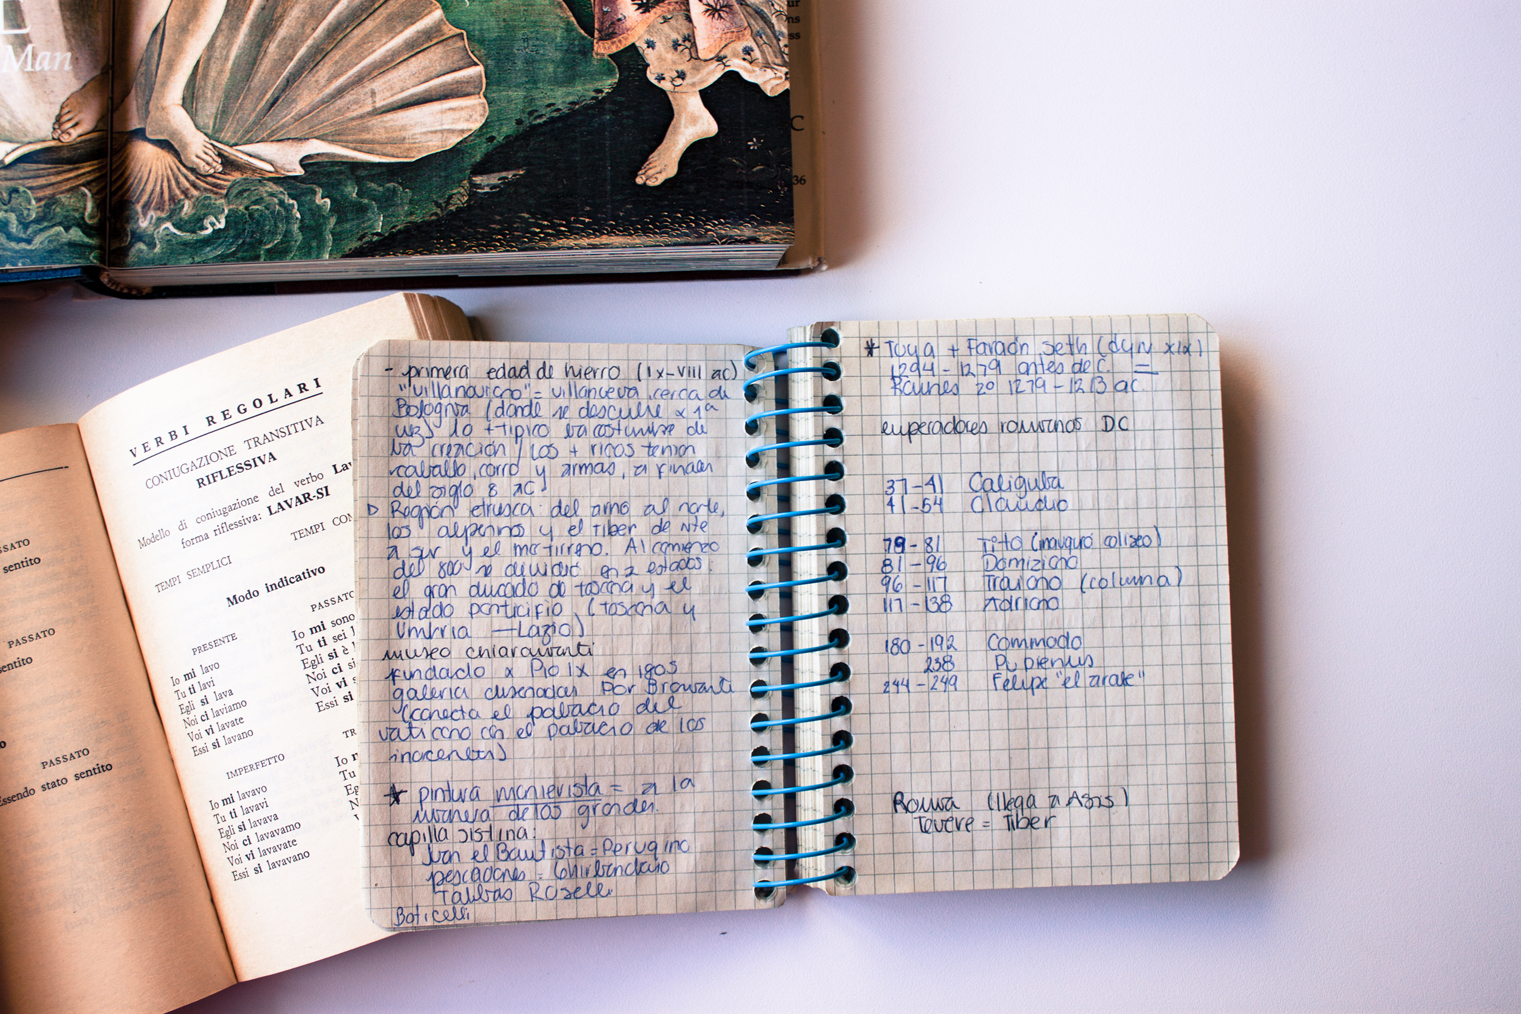 Man
36
VERBI REGOLARI
CONIUGAZIONE TRANSITIVA
RIFLESSIVA
Modello di coniugazione del verbo Lav
forma riflessiva: LAVAR-SI
TEMPI SEMPLICI
TEMPI COM
Modo indicativo
PRESENTE
Io mi lavo
Tu ti lavi
Egli si lava
Noi ci laviamo
Voi vi lavate
Essi si lavano
PASSATO
Io mi sono
Tu ti sei
Egli si è
Noi ci si
Voi vi s
Essi si
IMPERFETTO
Io mi lavavo
Tu ti lavavi
Egli si lavava
Noi ci lavavamo
Voi vi lavavate
Essi si lavavano
PASSATO
sentito
PASSATO
sentito
PASSATO
Essendo stato sentito
- primera edad de hierro (IX-VIII ac)
"villanovicno" = villanueva cerca de
Bologna (donde se descubre x 1ª
vez) lo + tipico la costumbre de
la creación / los + ricos tenian
caballo, carro y armas, a finales
del siglo 8 AC)
▷ Región etrusca: del arno al norte,
los alpeninos y el Tiber de Nte
a sur y el mar tirreno. Al comienzo
del 800 se dividió en 2 estados:
el gran ducado de toscana y el
estado pontificio (toscana y
Umbria — Lazio)
museo chiaramonti
fundado x Pio IX en 1805
galeria diseñadas por Bramante
(conecta el palacio del
vaticano con el palazio de los
inocentes)
* pintura manierista = a la
manera de los grandes.
capilla sistina:
Juan el Bautista = Perugino
pescadores = Ghirlandaio
Tablas Roselli
Boticelli
* Tuya + Faraón Seth (dyn XIX)
1294 - 1279 antes de C.
Ramses 2º 1279 - 1213 ac
emperadores romanos DC
37-41 Caligula
41-54 Claudio
79-81 Tito (inauguró coliseo)
81-96 Domiziano
96-117 Traiano (columna)
117-138 Adriano
180-192 Commodo
238 Pupienus
244-249 Felipe "el arabe"
Rouva (llega a Asas)
Tevere = Tiber